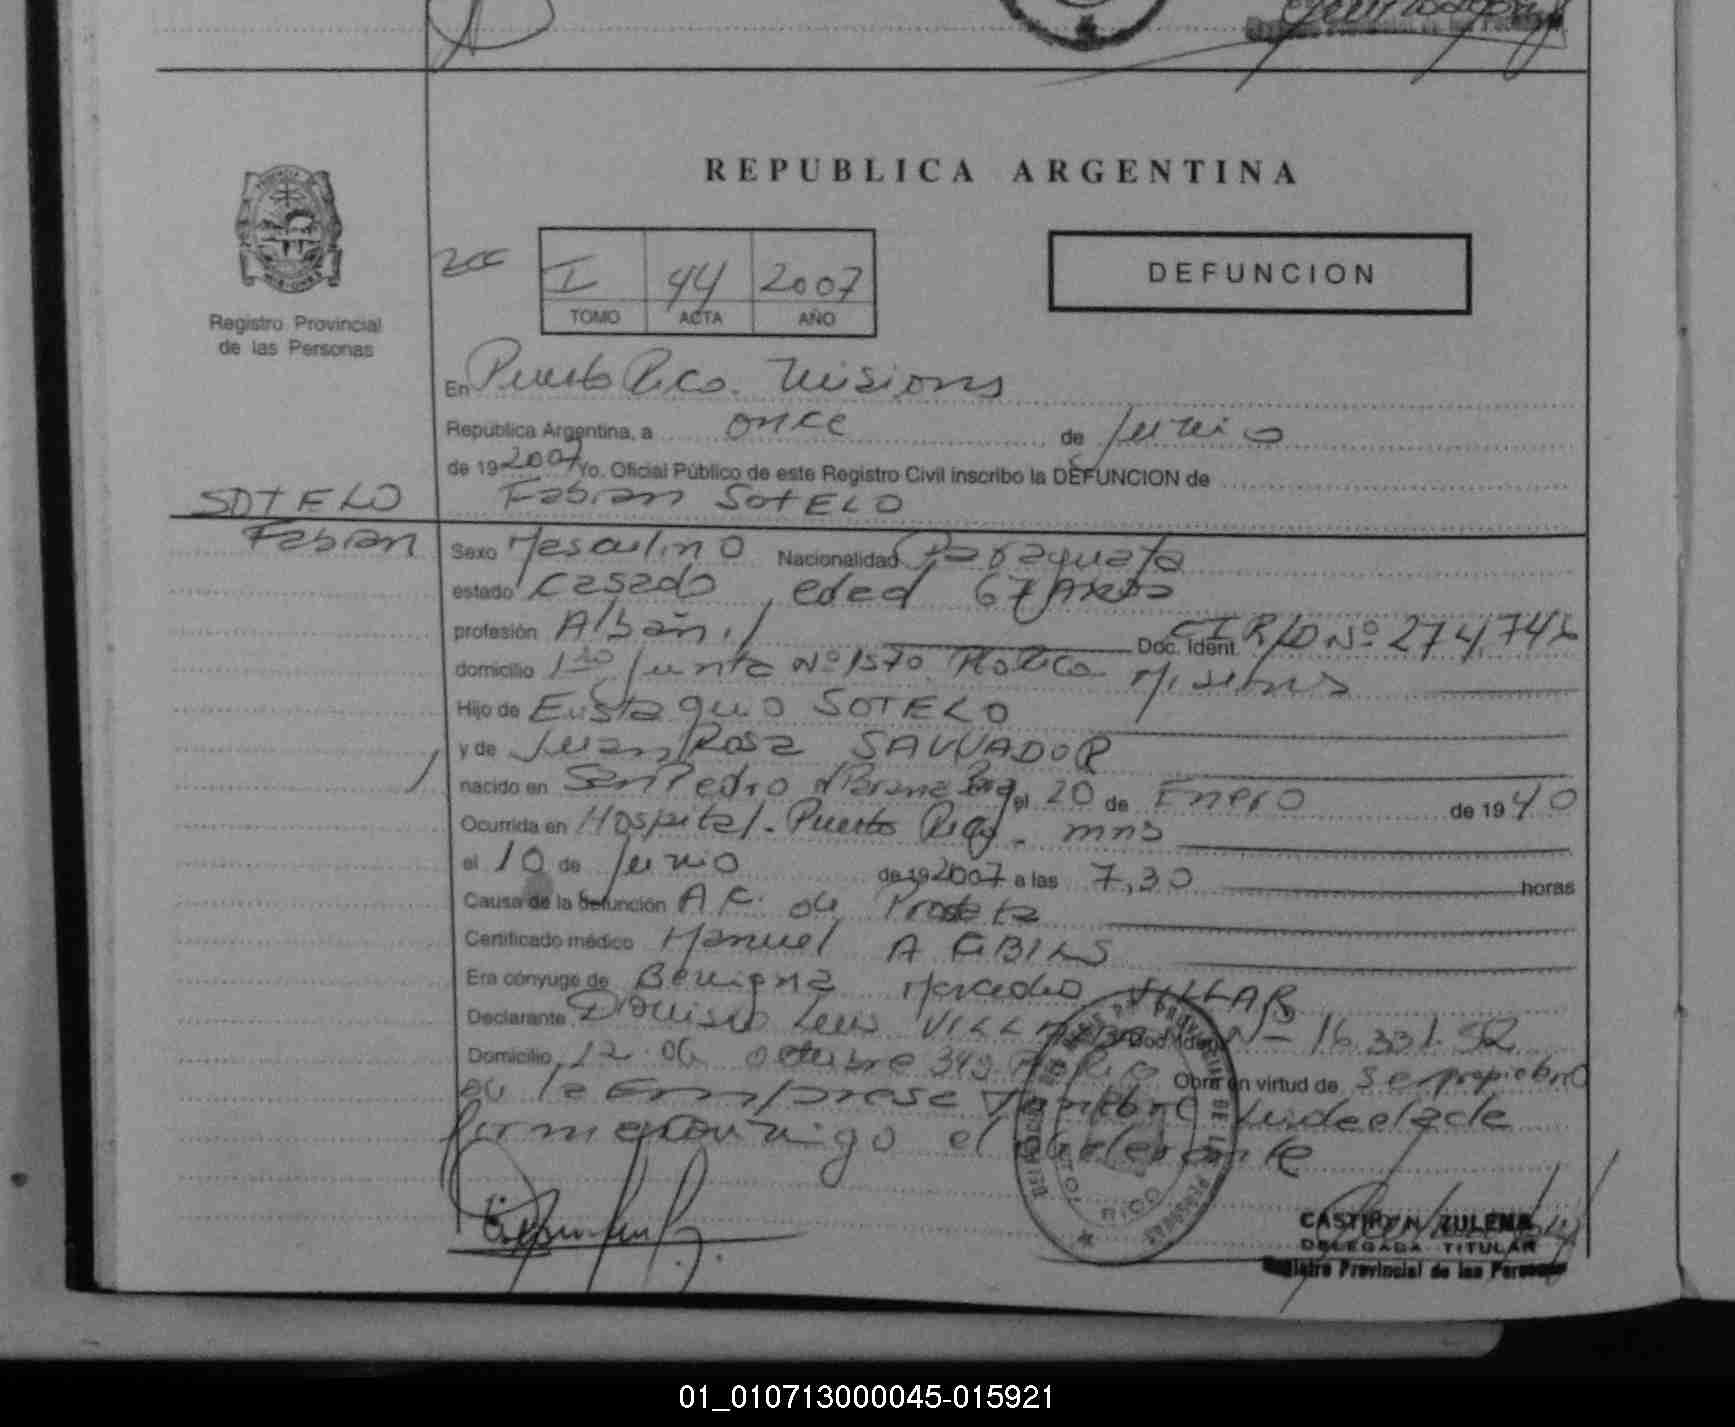 REPUBLICA ARGENTINA
I 44 2007
TOMO ACTA AÑO
DEFUNCION
Registro Provincial
de las Personas
En Puerto Rico. Misiones
República Argentina, a once de Junio
de 19 2007 Yo. Oficial Público de este Registro Civil inscribo la DEFUNCION de
SOTELO
Fabian
Fabian SOTELO
Sexo Masculino Nacionalidad Paraguaya
estado Casado edad 67 Años
profesión Albañil Doc. Ident. C.I.R/D Nº 274,74
domicilio 1ra Junta Nº 1570 Misiones
Hijo de Eustaquio SOTELO
y de Juana Rosa SALVADOR
nacido en San Pedro el 20 de Enero de 1940
Ocurrida en Hospital. Puerto Rico. mns
el 10 de Junio de 19 2007 a las 7,30 horas
Causa de la defunción de Prostata
Certificado médico Manuel A
Era cónyuge de Benigna Mercedes VILLAR
Declarante Dionisio Luis Doc. Ident. Nº 16.331.52
Domicilio 12 de octubre 349 Obra en virtud de
en la Empresa
firmando conmigo el declarante
RICO
CASTIRYN ZULEMA
DELEGADA TITULAR
Registro Provincial de las Personas
01_010713000045-015921